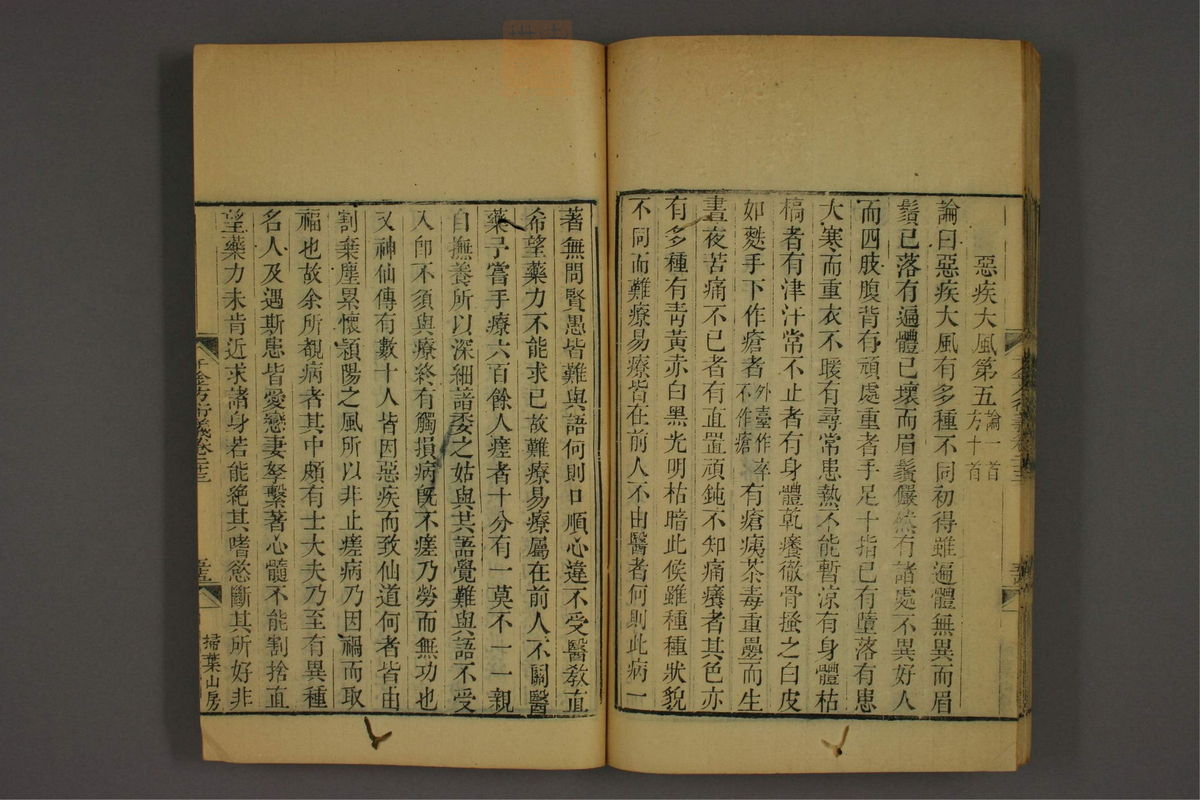 惡疾大風第五論一首方十首
論曰惡疾大風有多種不同初得雖遍體無異而眉
鬚已落有遍體已壞而眉鬚儼然有諸處不異好人
而四肢腹背有頑處重者手足十指已有墮落有患
大寒而重衣不暖有尋常患熱不能暫涼有身體枯
槁者有津汁常不止者有身體乾癢徹骨搔之白皮
如麩手下作瘡者外臺作卒不作瘡有瘡痍荼毒重疊而生
晝夜苦痛不已者有直置頑鈍不知痛癢者其色亦
有多種有靑黃赤白黑光明枯暗此候雖種種狀貌
不同而難療易療皆在前人不由醫者何則此病一
著無問賢愚皆難與語何則口順心違不受醫敎直
希望藥力不能求已故難療易療屬在前人不關醫
藥予嘗手療六百餘人瘥者十分有一莫不一一親
自撫養所以深細諳委之姑與其語覺難與語不受
入卽不須與療終有觸損病旣不瘥乃勞而無功也
又神仙傳有數十人皆因惡疾而致仙道何者皆由
割棄塵累懷潁陽之風所以非止瘥病乃因禍而取
福也故余所覩病者其中頗有士大夫乃至有異種
名人及遇斯患皆愛戀妻孥繫著心髓不能割捨直
望藥力未肯近求諸身若能絶其嗜慾斷其所好非
千金方衍義卷二十三
掃葉山房